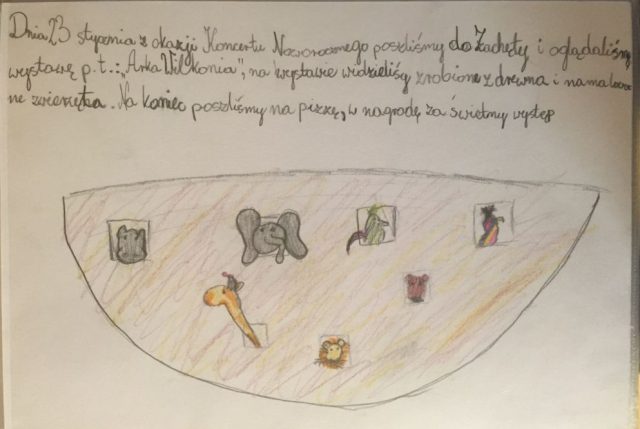 Dnia 23 stycznia z okazji Koncertu Noworocznego poszliśmy do Zachęty i oglądaliśmy
wystawę p.t.: „Arka Wilkonia", na wystawie widzieliśy zrobione z drewna i namalowa-
ne zwierzęta. Na koniec poszliśmy na pizzę, w nagrodę za świetny występ